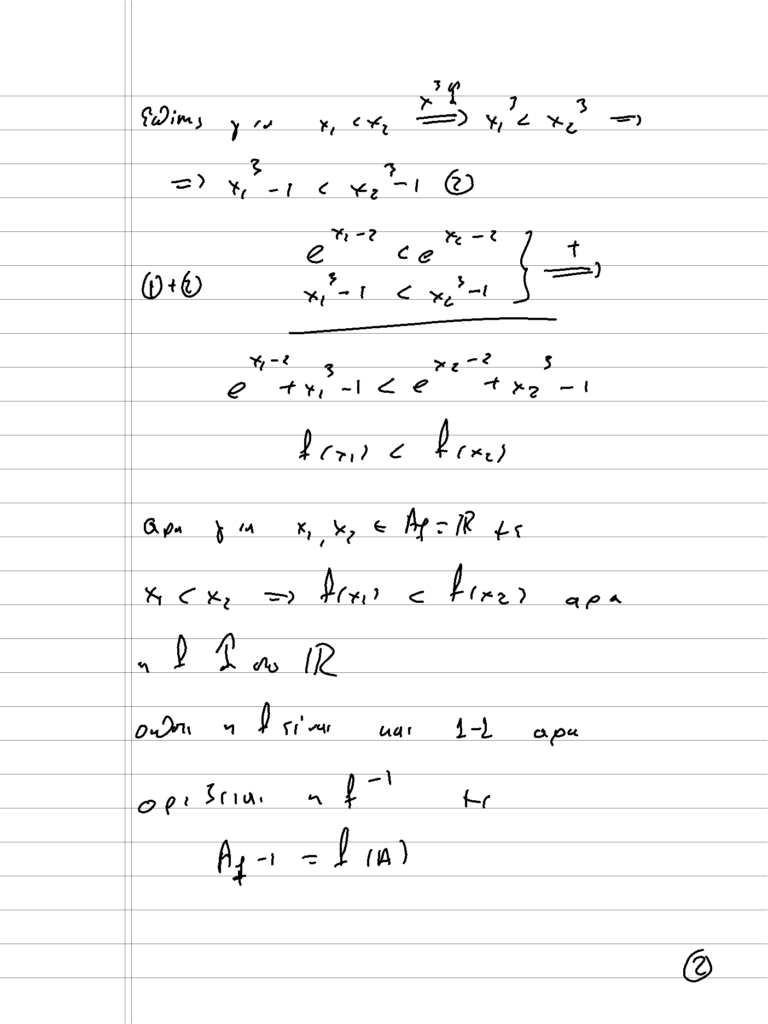 Επίσης για x₁ < x₂ x³↑ ⟹ x₁³ < x₂³ ⟹
⟹ x₁³ - 1 < x₂³ - 1 ②
①+② e^(x₁-2) < e^(x₂-2)
x₁³ - 1 < x₂³ - 1 } + ⟹
e^(x₁-2) + x₁³ - 1 < e^(x₂-2) + x₂³ - 1
f(x₁) < f(x₂)
αρα για x₁, x₂ ∈ A_f = ℝ με
x₁ < x₂ ⟹ f(x₁) < f(x₂) αρα
η f ↑ στο ℝ
οπότε η f είναι και 1-1 αρα
ορίζεται η f⁻¹ με
A_f⁻¹ = f(A)
②